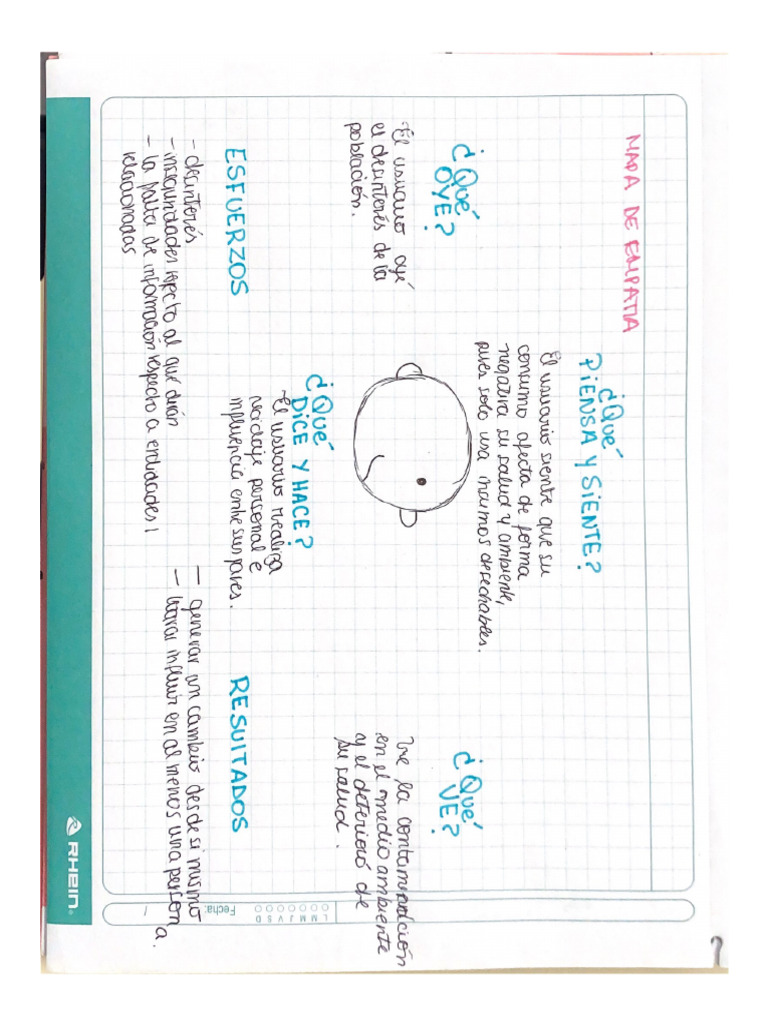 MAPA DE EMPATIA
¿Qué
PIENSA Y SIENTE?
El usuario siente que su
consumo afecta de forma
negativa su salud y ambiente,
pues solo usa insumos desechables.
¿Qué
OYE?
El usuario oyé
el desinterés de la
población.
¿Qué
VE?
Ve la contaminación
en el medio ambiente
y el deterioró de
su salud.
¿Qué
DICE Y HACE?
-El usuario realiza
reciclaje personal e
influencia entre sus pares.
ESFUERZOS
- desinterés
- inseguridades respecto al qué dirán
- la falta de información respecto a entidades
relacionadas
RESULTADOS
- generar un cambio desde si mismo
- lograr influir en al menos una persona.
Fecha:
L M J V S D
RHEIN